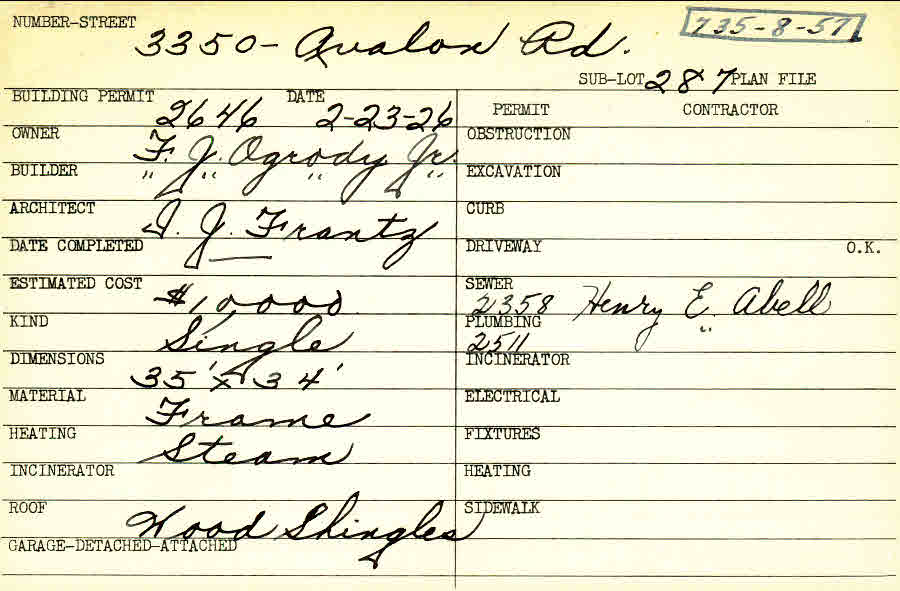 NUMBER-STREET 3350- Avalon Rd. 735-8-57
SUB-LOT 287 PLAN FILE
BUILDING PERMIT 2646 DATE 2-23-26 PERMIT CONTRACTOR
OWNER F. J. Ogrody Jr. OBSTRUCTION
BUILDER " " " " EXCAVATION
ARCHITECT J. J. Frantz CURB
DATE COMPLETED — DRIVEWAY O.K.
ESTIMATED COST $10000 SEWER 2358 Henry E. Abell
KIND Single PLUMBING 2511 "
DIMENSIONS 35' x 34' INCINERATOR
MATERIAL Frame ELECTRICAL
HEATING Steam FIXTURES
INCINERATOR HEATING
ROOF Wood Shingles SIDEWALK
GARAGE-DETACHED-ATTACHED